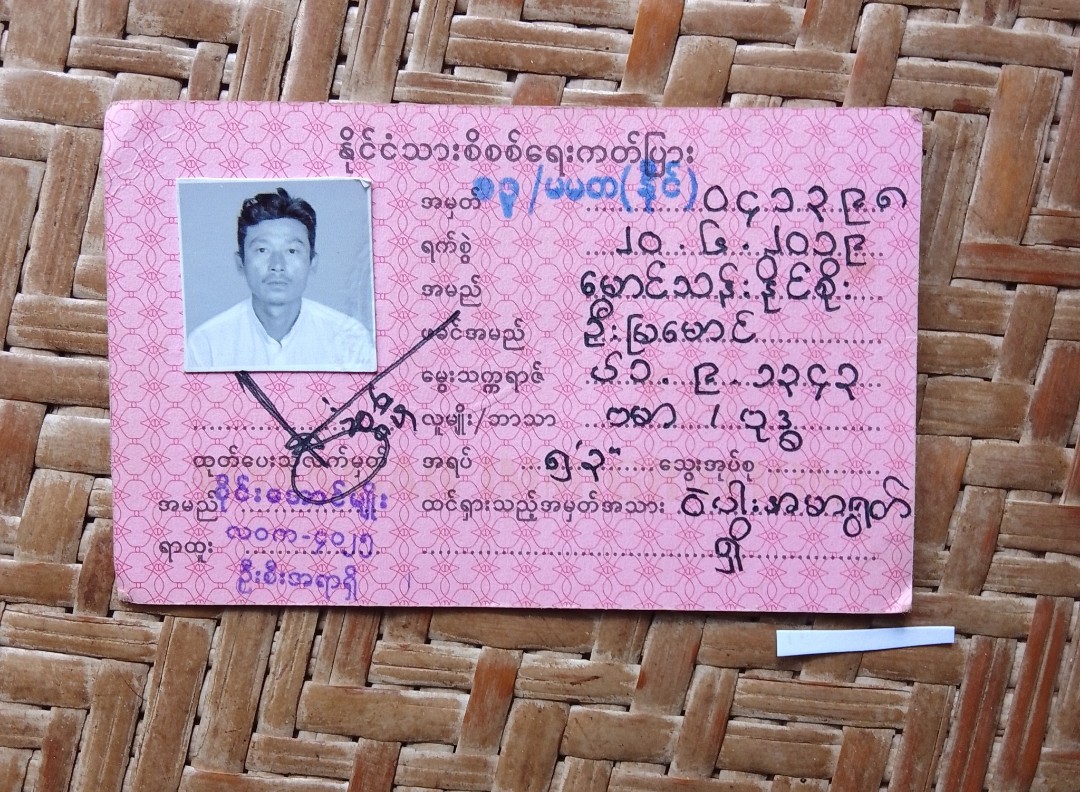 နိုင်ငံသားစိစစ်ရေးကတ်ပြား
အမှတ် /မမတ(နိုင်) ၀၄၁၃၉၈
ရက်စွဲ ၂၀.၆.၂၀၁၉
အမည် မောင်သန်းနိုင်စိုး
ဖခင်အမည် ဦးမြမောင်
မွေးသက္ကရာဇ် ၁၃၄၃
လူမျိုး/ဘာသာ ဗမာ / ဗုဒ္ဓ
အရပ် ၅'၃" သွေးအုပ်စု
ထင်ရှားသည့်အမှတ်အသား ဝဲပါးအမာရွတ်
ရှိ
ထုတ်ပေးသူလက်မှတ်
အမည် စိုင်းအောင်မျိုး
ရာထူး လဝက-၄၀၂၅
ဦးစီးအရာရှိ